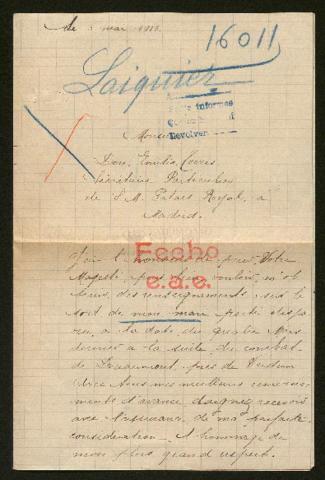 le 3 mai 1916
16011
Laiguier
Pedir informes
Devolver
Monsieur
Don Emilio
Secrétaire Particulier
de S. M. Palais Royal, à
Madrid.
J'ai l'honneur de prier Votre
Majesté pour bien vouloir m'ob
tenir des renseignements sur le
Fecho
e.a.e.
sort de mon mari porté dispa
ru, à la date du quatre Mars
dernier à la suite du combat
de Douaumont près de Verdun
Avec tous mes meilleurs remercie
ments d'avance daignez recevoir
avec l'assurance de ma parfaite
considération et hommage de
mon plus grand respect.